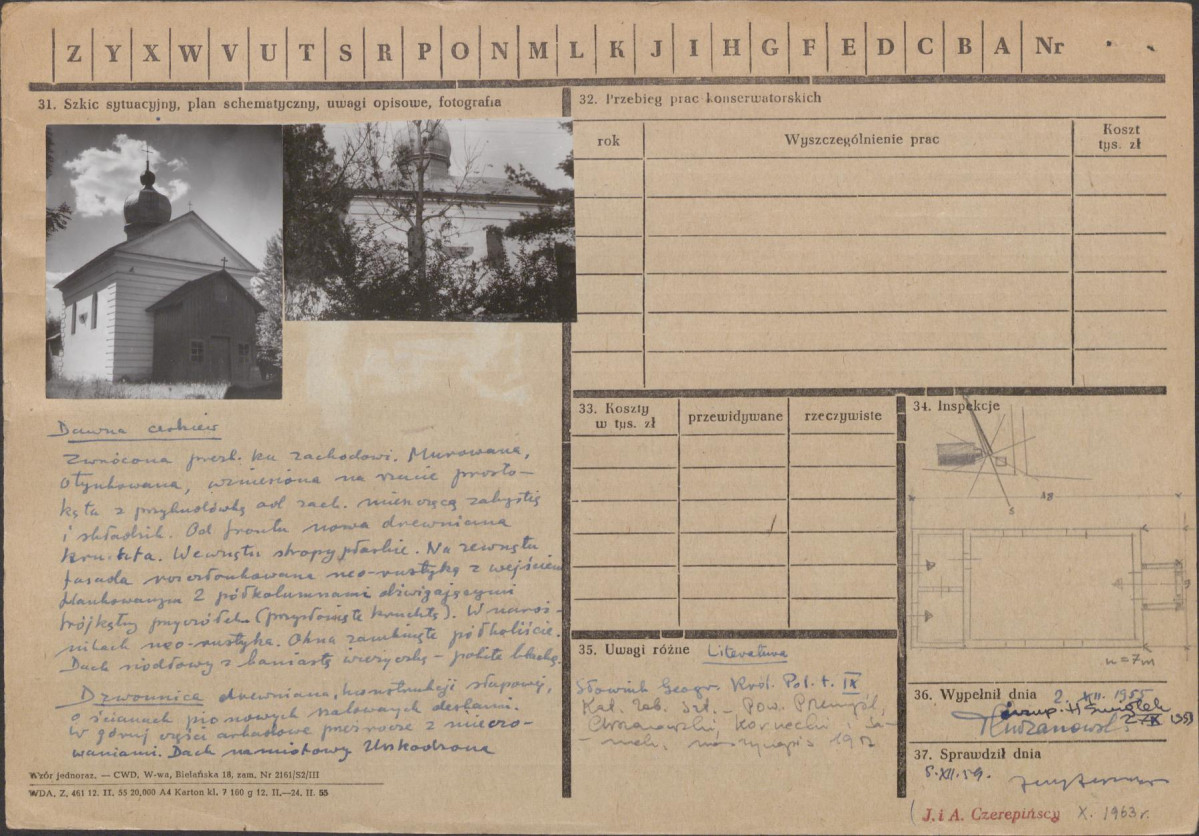 Z Y X W V U T S R P O N M L K J I H G F E D C B A Nr
31. Szkic sytuacyjny, plan schematyczny, uwagi opisowe, fotografia
Dawna cerkiew
Zwrócona prezb. ku zachodowi. Murowana,
otynkowana, wzniesiona na rzucie prosto-
kąta z przybudówką od zach. mieszczącą zakrystię
i składzik. Od frontu nowa drewniana
kruchta. Wewnątrz stropy płaskie. Na zewnątrz
fasada rozczłonkowana neo-rustyką z wejściem
flankowanym 2 półkolumnami dźwigającymi
trójkątny przyczółek (przysłonięte kruchtą). W naroż-
nikach neo-rustyka. Okna zamknięte półkoliście.
Dach siodłowy z baniastą wieżyczką - pobite blachą.
Dzwonnica drewniana, konstrukcji słupowej,
o ścianach pionowych szalowanych deskami.
W górnej części arkadowe przeźrocze z
Dach namiotowy Uszkodzona
Wzór jednoraz. — CWD, W-wa, Bielańska 18, zam. Nr 2161/S2/III
WDA. Z. 461 12. II. 55 20,000 A4 Karton kl. 7 160 g 12. II.—24. II. 55
32. Przebieg prac konserwatorskich
rok Wyszczególnienie prac Koszt tys. zł
33. Koszty w tys. zł przewidywane rzeczywiste
34. Inspekcje
S
n = 7m
35. Uwagi różne Literatura
Słownik Geogr. Król. Pol. t. IX
Kat. Zab. Szt. - Pow. Przemyśl,
Chrzanowski, Kornecki i Sa-
mek, maszynopis
36. Wypełnił dnia 2. XII. 1955
37. Sprawdził dnia
5. XII. 59.
J. i A. Czerepińscy X. 1963 r.